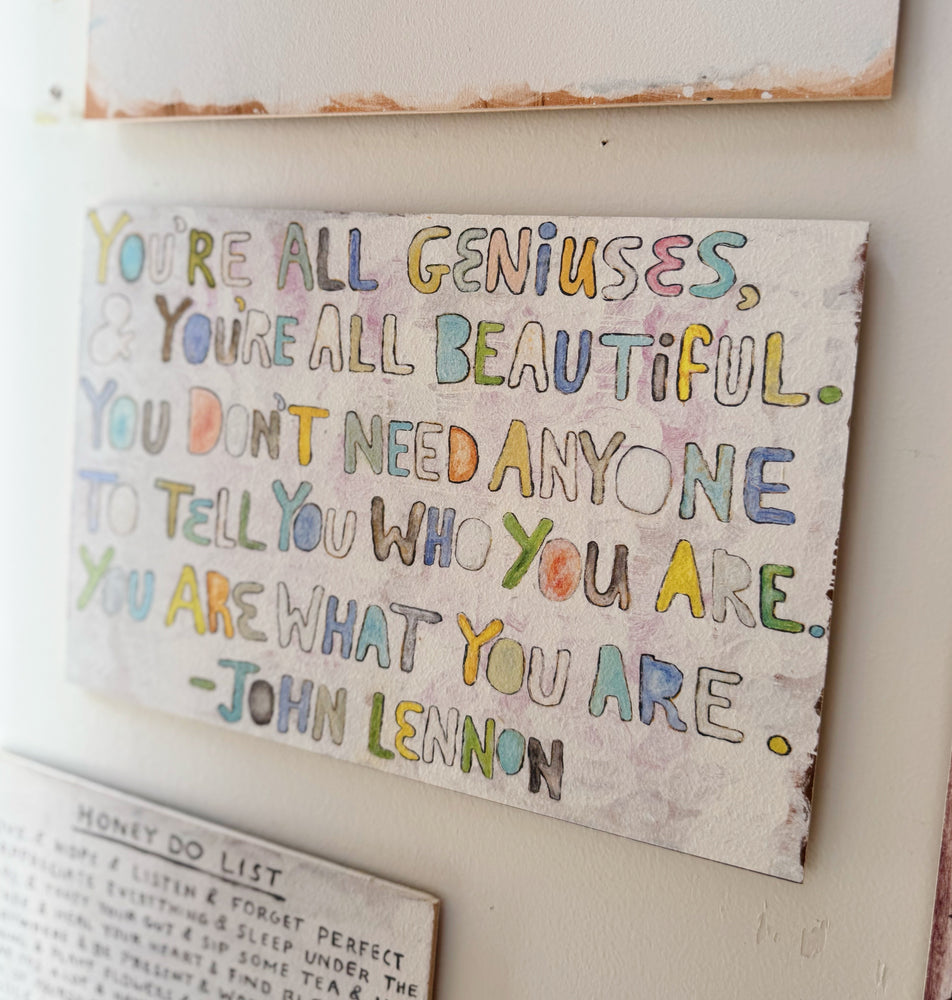 YOU'RE ALL GENiUSES,
& YOU'RE ALL BEAUTiFUL.
YOU DON'T NEED ANYONE
TO TELL YOU WHO YOU ARE.
YOU ARE WHAT YOU ARE.
-JOHN LENNON
HONEY DO LIST
& HOPE & LISTEN & FORGET PERFECT
EVERYTHING & SLEEP UNDER THE
& TRUST YOUR GUT & SIP SOME TEA &
& HEAL YOUR HEART & FIND
& BE PRESENT &
PLANT FLOWERS &